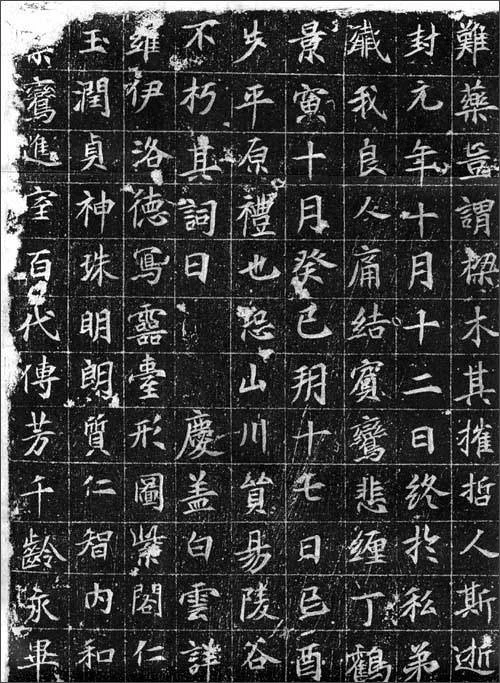 難藥豈謂樑木其摧哲人斯逝
封元年十月十二日終於私弟
殲我良人痛結賓鸞悲纏丁鶴
景寅十月癸巳朔十七日己酉
步平原禮也恐山川貿易陵谷
不朽其詞曰 慶盖白雲詳
雄伊洛德冩靈臺形圖紫閣仁
玉潤貞神珠明朗質仁智內和
鸞進室百代傳芳千齡永畢